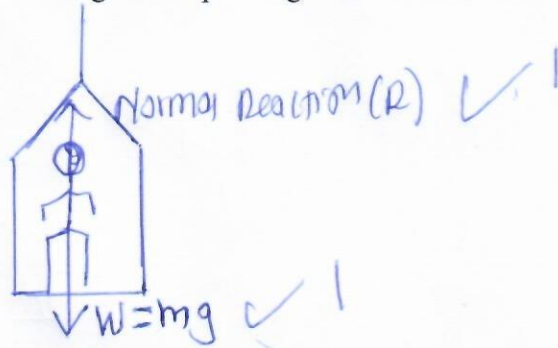 Normal Reaction (R) ✓ 1
W = mg ✓ 1